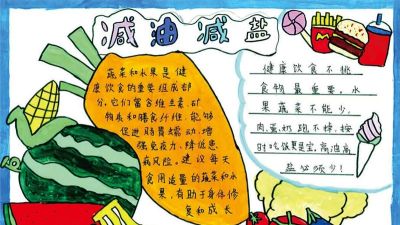 减油减盐
蔬菜和水果是健
康饮食的重要组成部
分,它们富含维生素、矿
物质和膳食纤维,能够
促进肠胃蠕动,增
强免疫力,降低患
病风险。建议每天
食用适量的蔬菜和水
果,有助于身体修
复和成长
健康饮食不挑
食物量重要,水
果蔬菜不能少,
肉蛋奶跑不掉,按
时吃饭果是宝,高油高
盐必须少!